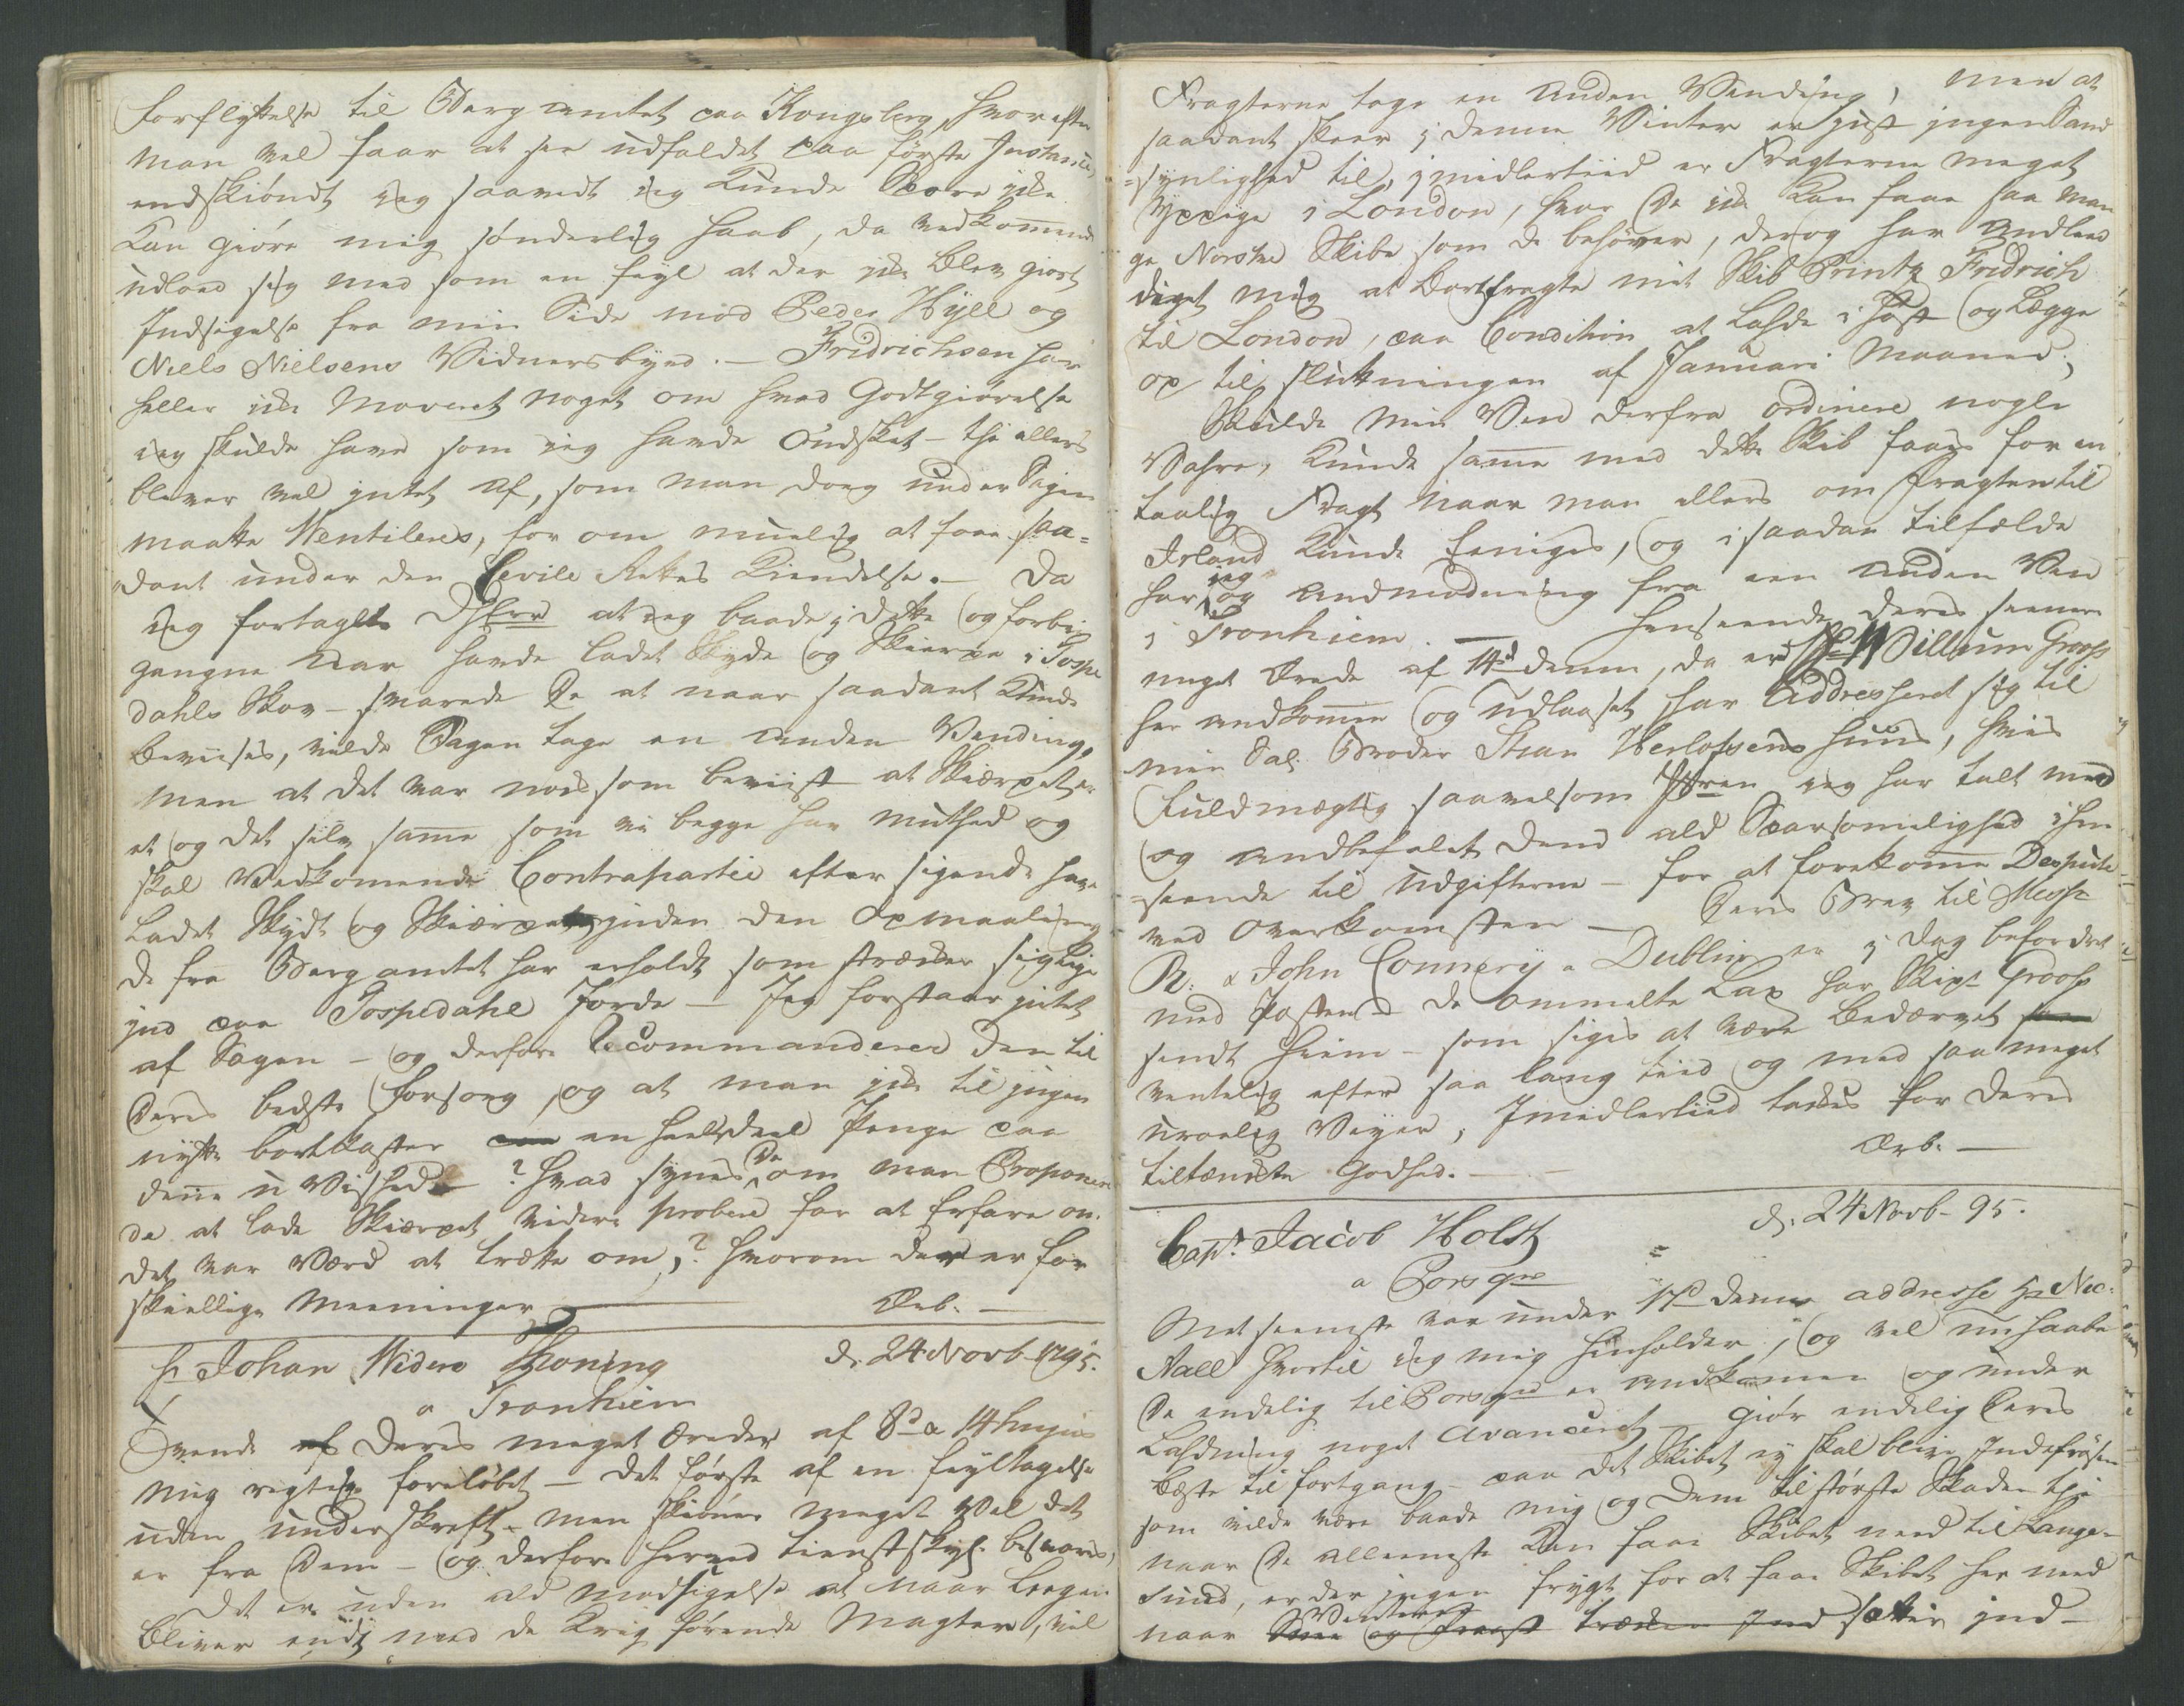 forflyttelse til Berg amtet paa Kongsberg, hvor efter
man vel faar at see udfaldet paa første Instance,
endskiøndt jeg saavidt jeg kunde spore icke
kan giøre mig sønderlig haab, da vedkommende
udload sig med som en feyl at der icke blev giort
Indsigelse fra min Side mod Peder Hyell og
Niels Nielsens Vidnersbyrd. - Fridrichsen har
heller icke Moveret noget om hvad Godtgiørelse
jeg skulde have som jeg havde Ôndsket - thi ellers
bliver vel intet af, som man dog under Sagen
maatte Ventileres, for om muelig at faae saa=
dant under den Civile Rettes Kiendelse. - Da
jeg fortaglte at jeg baade i dette og forbi
gangne Aar havde ladet Skyde og Skierpe i Gospe
dahls Skov - svarede De at naar saadant kunde
beviises, vilde Sagen tage en anden Vending,
men at det var nok som beviist at Skiærpet er
et og det selv samme som vi begge har muthed og
skal Vedkomende Contrapartie efter sigende have
ladet Skydt og Skiærpet inden den Opmaaling
de fra Bergamtet har erholdt som strækker sig lige
ind paa Gospedahl Jorde - Jeg forstaar intet
af Sagen - og derfore Recommanderes den til
Deres bedste forsorg, og at man icke til ingen
nytte bortkaster en heel deel Penge paa
denne u Vished - ? hvad synes De om man Propone
de at lade Skiærpet videre probere for at Erfare om
det var Værd at trætte om,? hvorom der er for
skiellige Meeninger Ærb. -
Hr Johan Widero Thoning d. 24 Novb 1795.
a Tronhiem
Svende af Deres meget ærede af 8d & 14 hujus
mig rigtig foreløbet - det første af en feyltagelse
uden underskreft - men skiønner meget vel det
er fra Dem - og derfore herved tienstskyl. besvares,
det er uden ald modsigelse at naar Krigen
bliver endt med de Krig førende Magter, vil
Fragterne tage en anden Vending, men at
saadant skeer i denne Vinter er just ingen Sand
=synlighed til, imidlertiid er Fragterne meget
Yppige i London, hvor De icke kan faae saa man
ge Norske Skibe som de behøver, derog har Andleed
diget mig at bortfragte mit Skib Printz Fridrich
til London, paa Condition at Lahde i Høst og Lægge
op til slutningen af Januari Maaned;
Skulde min Ven derfra ordinere nogle
Vahre, kunde samme med dette Skib faaes for en
taalig Fragt naar man ellers om fragten til
Irland kunde Eeniges, og i saadan tilfælde
har jeg og andmodning fra een anden Ven
i Tronhiem. - henseende deres seenere
meget Ærede af 14d denne, da er Willum Groos
her andkommen og udlosset har Addresseret sig til
min Sal. Broder Herlofsens huus, hvis
fuldmægtig saavelsom jeg har talt med
og andbefalet dend ald Sparsommelighed i hen
=seende til Udgifterne - for at forekomme Despute
ved overkomsten - Deres Brev til Messrs
R. & John Connery a Dublin er i dag befordret
med Posten - de ommelte Lax har Skipr Groos
sendt hiem - som siges at være bedærvet
ventelig efter saa lang tiid og med saa meget
uroelig Veyer, Imidlertiid tackes for deres
tiltænckte Godhed. - Ærb. -
Capt. Jacob Holst d. 24 Novb - 95.
a Porsgrd
Mit seeneste var under 17d denne addresse Hr Nic.
Aall hvortil jeg mig henholder; og vel nu haabe
De endelig til Porsgrd er andkommen og under
Lahdning noget avanceret - giør endelig deres
beste til fortgang - paa det Skibet ey skal blive Indefrosen
som vilde være baade mig og Dem til største Skade - thi
naar De allereneste kan faae Skibet need til Lange-
sund, er der ingen frygt for at faae Skibet her ned
naar Vinteren og Frost trækken Ind sætter ind -